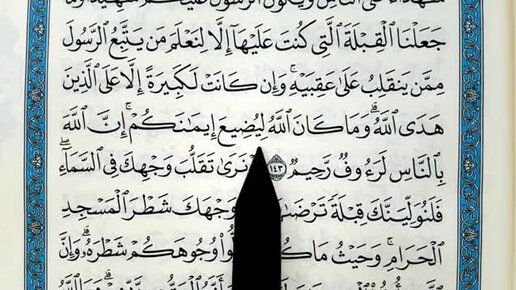 شُهَدَآءَ عَلَى ٱلنَّاسِ وَيَكُونَ ٱلرَّسُولُ عَلَيْكُمْ شَهِيدًا وَمَا
جَعَلْنَا ٱلْقِبْلَةَ ٱلَّتِى كُنتَ عَلَيْهَآ إِلَّا لِنَعْلَمَ مَن يَتَّبِعُ ٱلرَّسُولَ
مِمَّن يَنقَلِبُ عَلَىٰ عَقِبَيْهِۚ وَإِن كَانَتْ لَكَبِيرَةً إِلَّا عَلَى ٱلَّذِينَ
هَدَى ٱللَّهُۗ وَمَا كَانَ ٱللَّهُ لِيُضِيعَ إِيمَٰنَكُمْۚ إِنَّ ٱللَّهَ
بِٱلنَّاسِ لَرَءُوفٌ رَّحِيمٌ ١٤٣ نَرَىٰ تَقَلُّبَ وَجْهِكَ فِى ٱلسَّمَآءِۖ
فَلَنُوَلِّيَنَّكَ قِبْلَةً وَجْهَكَ شَطْرَ ٱلْمَسْجِدِ
ٱلْحَرَامِۚ وَحَيْثُ مَا وُجُوهَكُمْ شَطْرَهُۥۗ وَإِنَّ